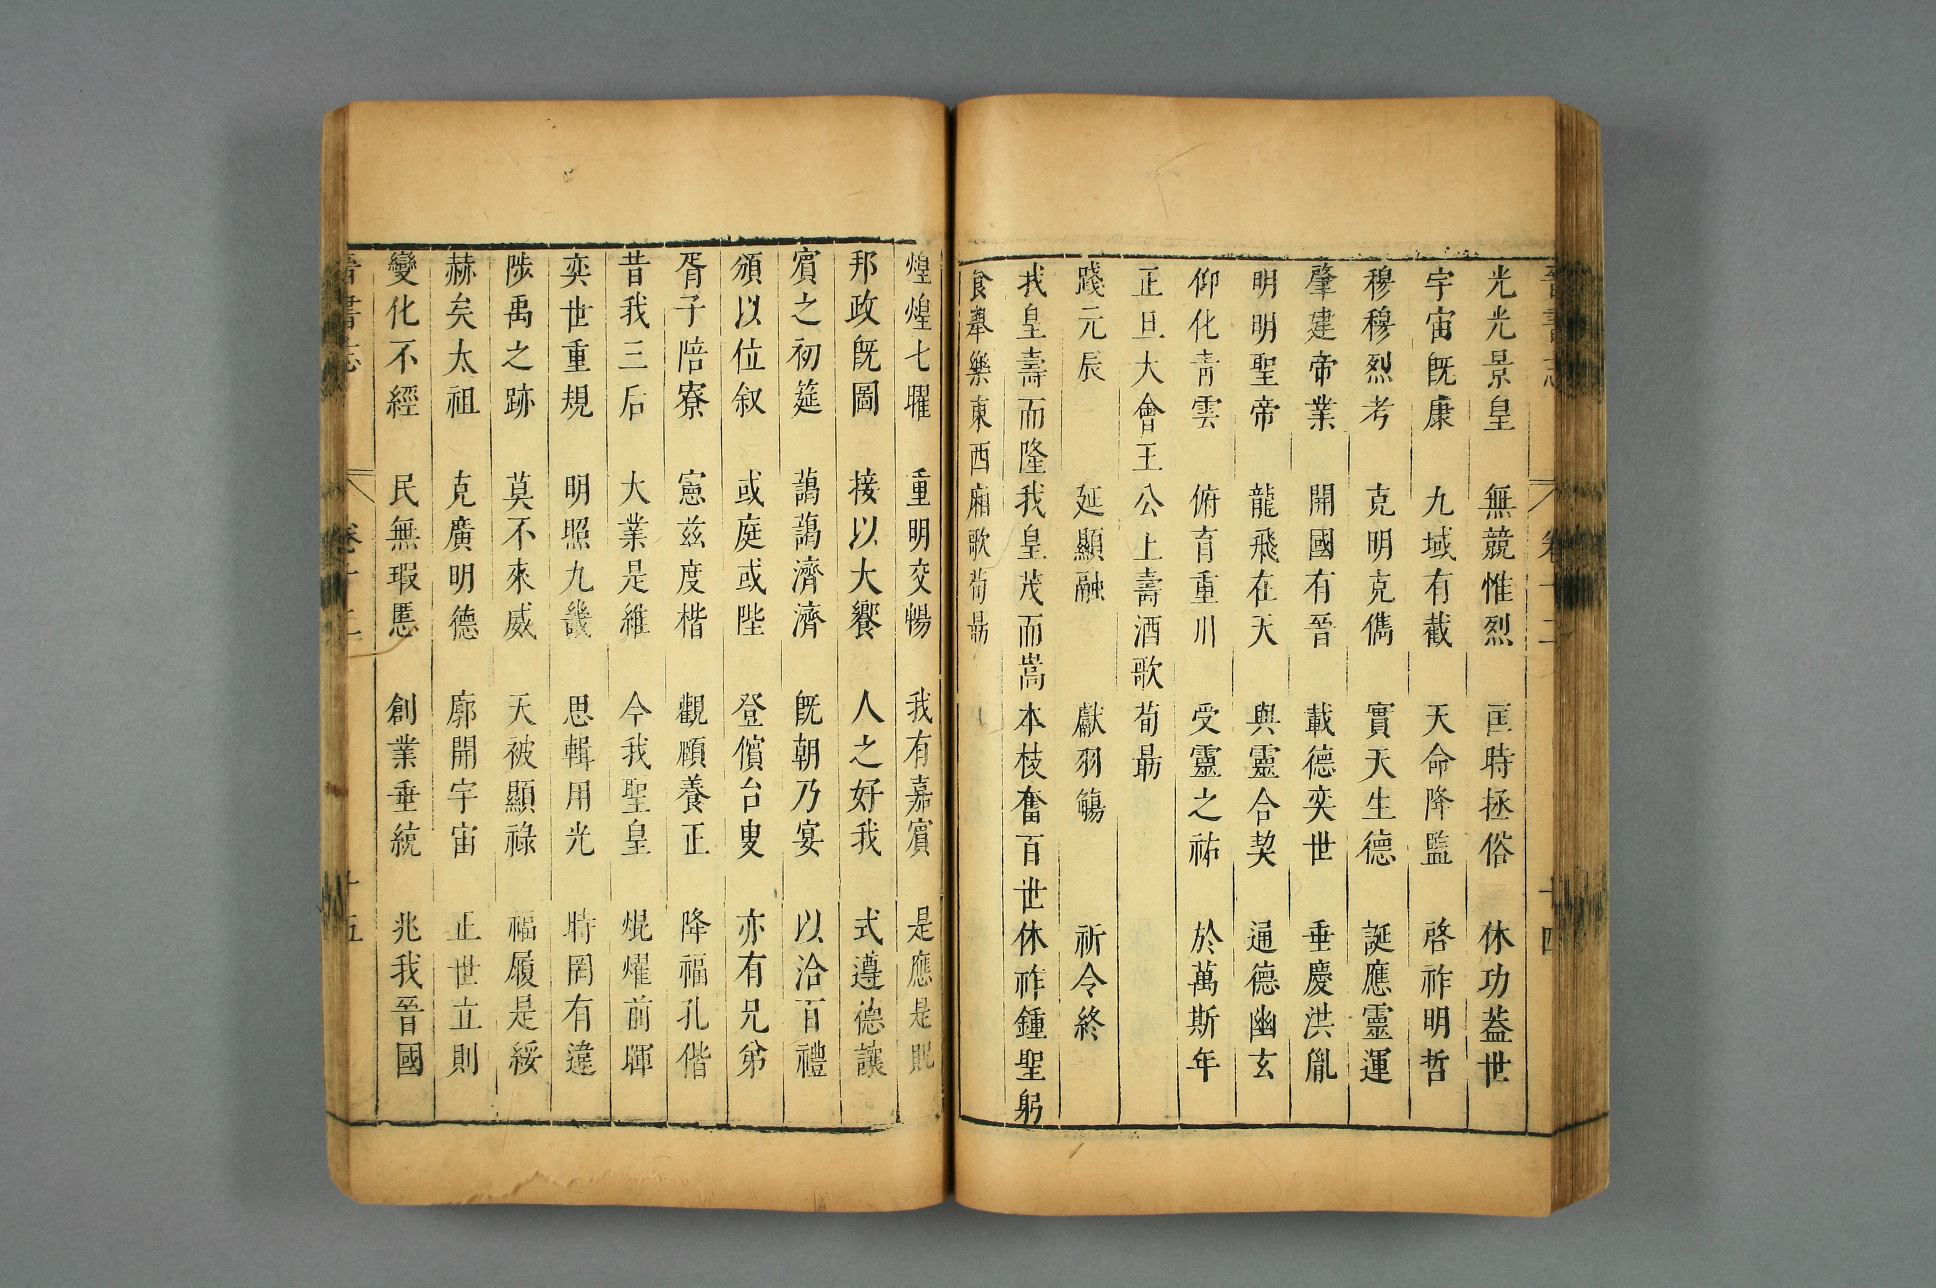 晉書志 卷十二 十四
光光景皇 無競惟烈 匡時拯俗 休功葢世
宇宙旣康 九域有截 天命降監 啓祚明哲
穆穆烈考 克明克儁 實天生德 誕應靈運
肇建帝業 開國有晉 載德奕世 垂慶洪胤
明明聖帝 龍飛在天 與靈合契 通德幽玄
仰化青雲 俯育重川 受靈之祐 於萬斯年
正旦大會王公上壽酒歌 荀勗
踐元辰 延顯融 獻羽觴 祈令終
我皇壽而隆我皇茂而嵩本枝奮百世休祚鍾聖躬
食舉樂東西廂歌荀勗
煌煌七曜 重明交暢 我有嘉賓 是應是貺
邦政旣圖 接以大饗 人之好我 式遵德讓
賓之初筵 藹藹濟濟 旣朝乃宴 以洽百禮
頒以位叙 或庭或陛 登儐台叟 亦有兄弟
胥子陪寮 憲兹度楷 觀頤養正 降福孔偕
昔我三后 大業是維 今我聖皇 焜燿前暉
奕世重規 明照九畿 思輯用光 時罔有違
陟禹之跡 莫不來威 天被顯祿 福履是綏
赫矣太祖 克廣明德 廓開宇宙 正世立則
變化不經 民無瑕慝 創業垂統 兆我晉國
晉書志 卷十二 十五